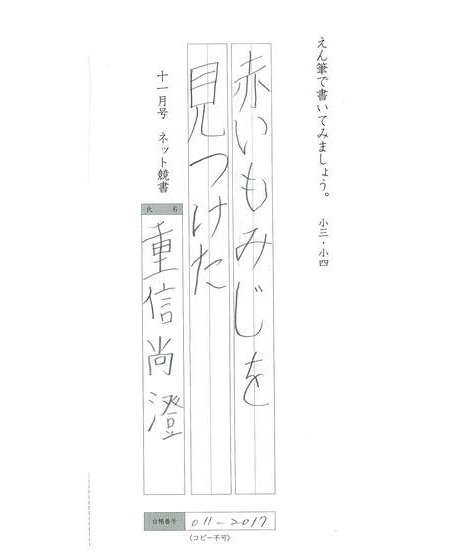 えん筆で書いてみましょう。 小三・小四
赤いもみじを
見つけた
十一月号 ネット競書
氏 名
重信尚澄
台帳番号 011-2017
(コピー不可)